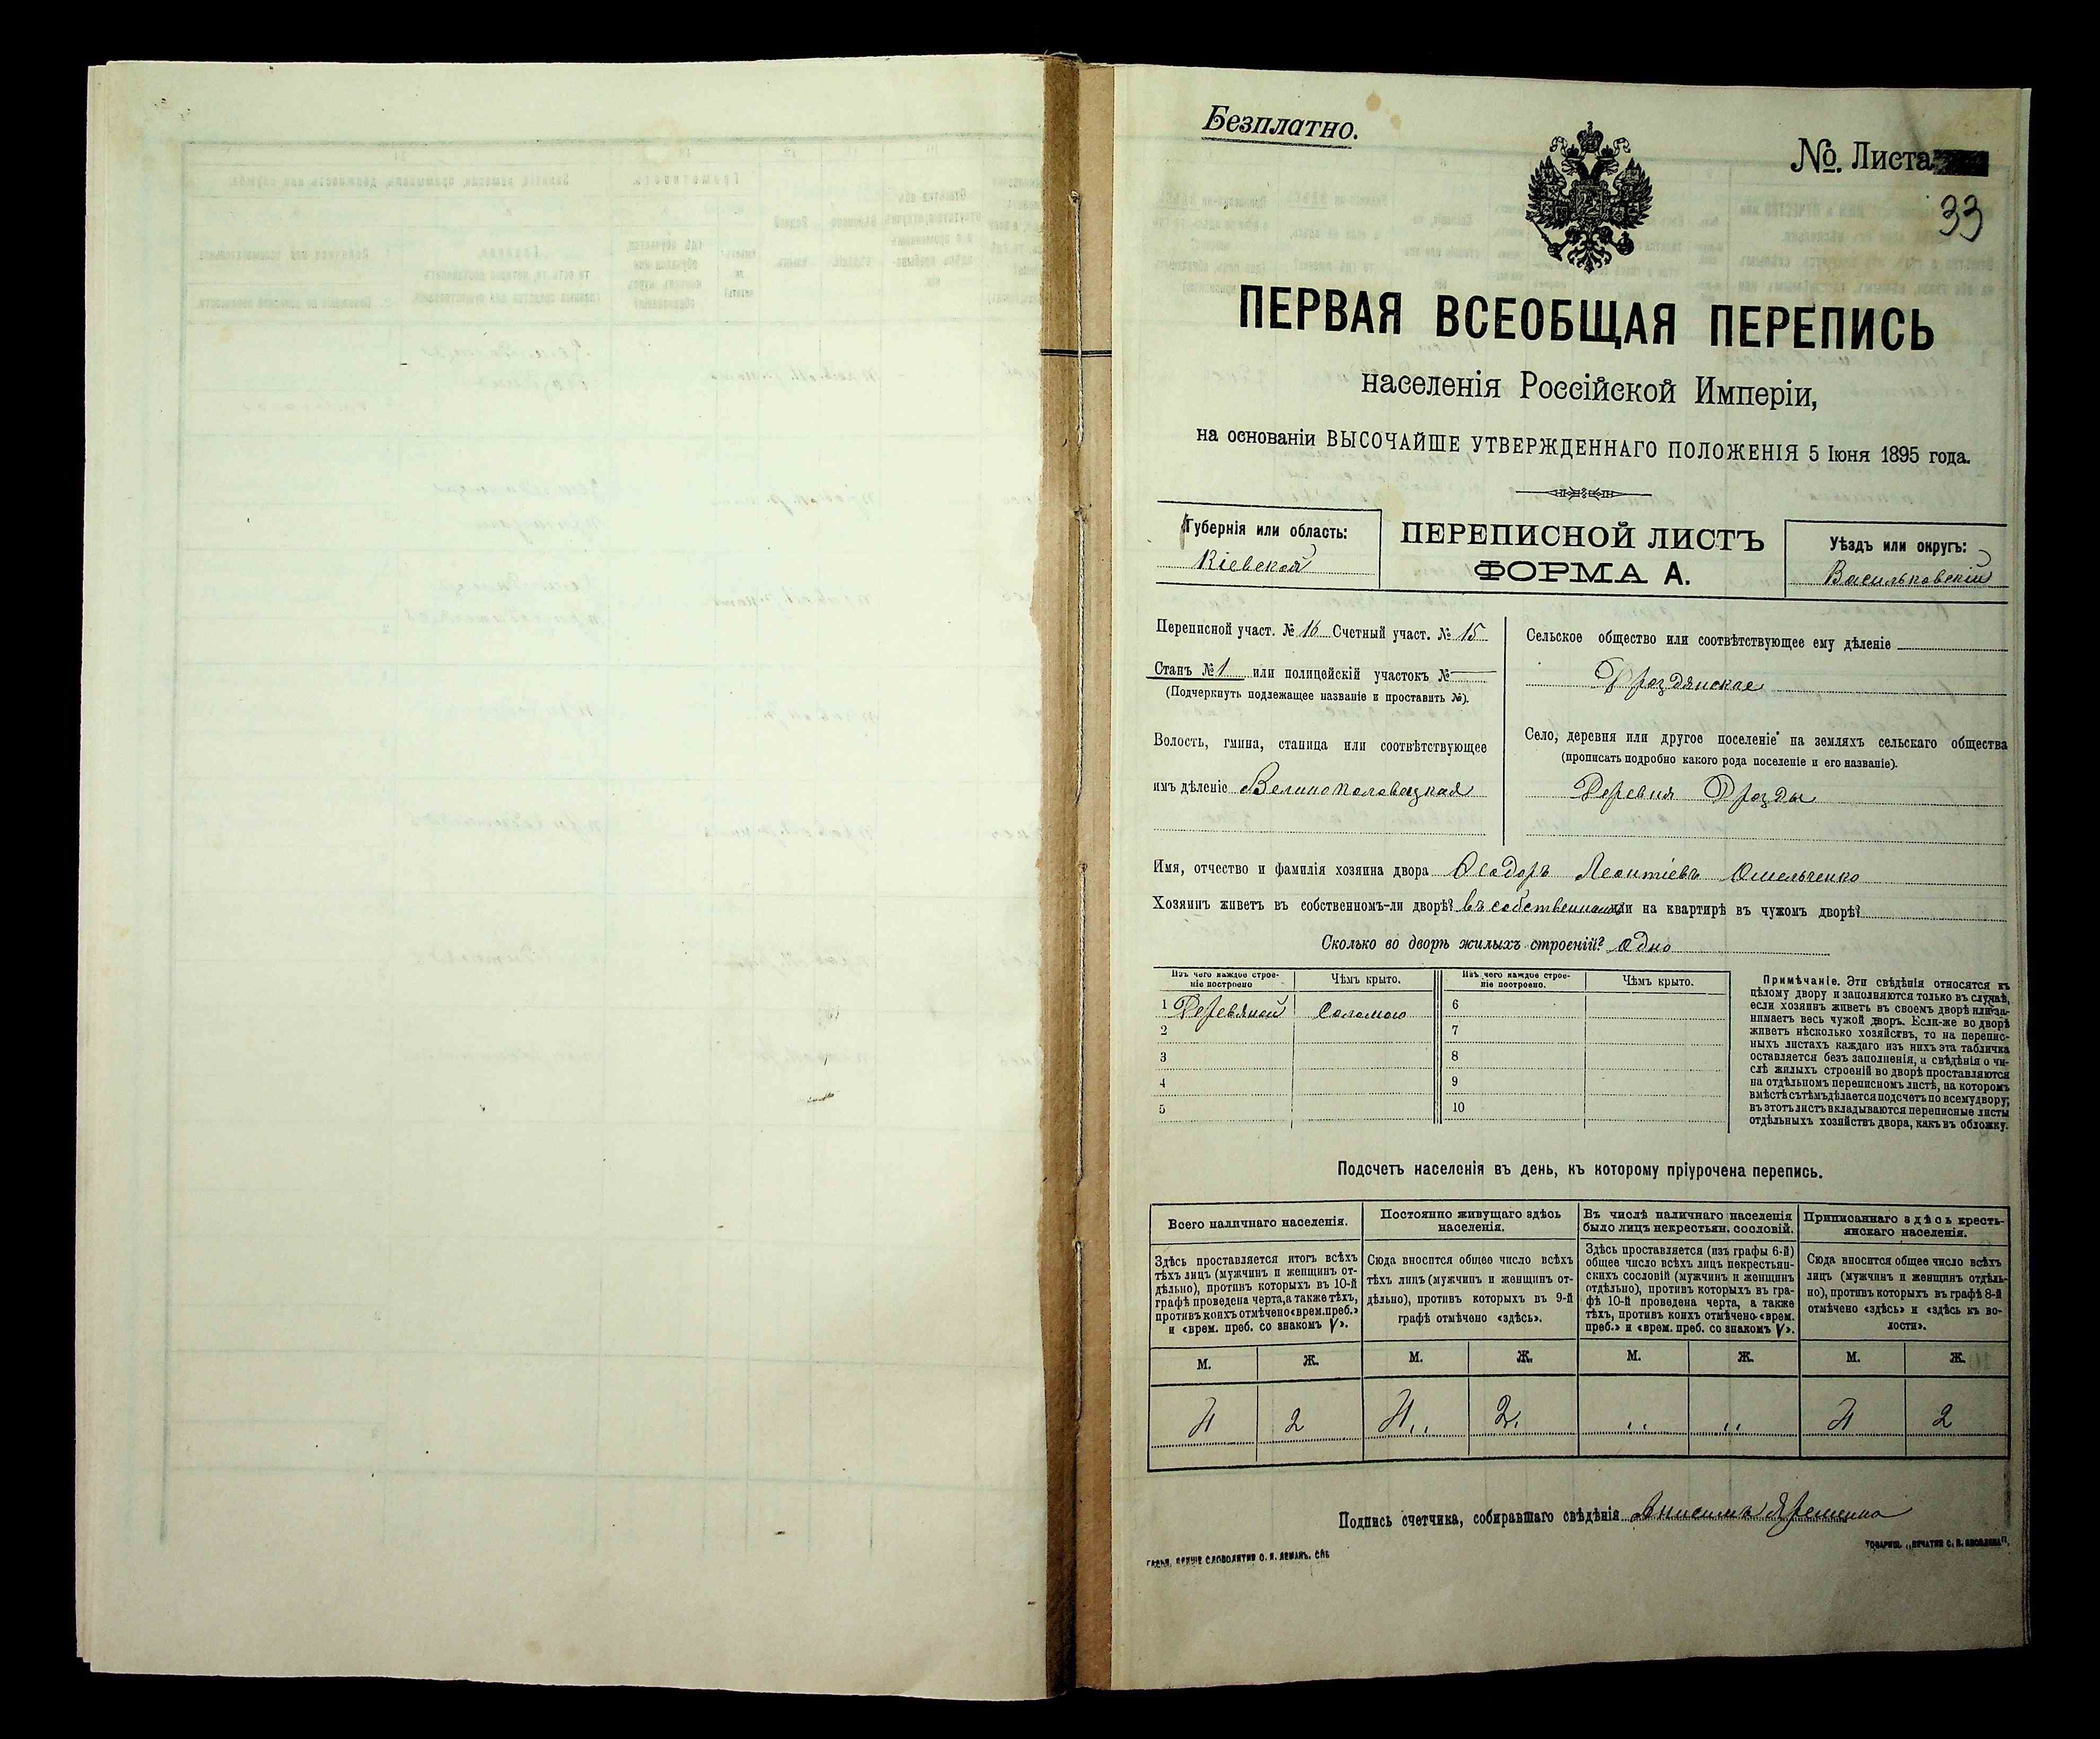 Безплатно.
№. Листа
33
ПЕРВАЯ ВСЕОБЩАЯ ПЕРЕПИСЬ
населенія Россійской Имперіи,
на основаніи ВЫСОЧАЙШЕ УТВЕРЖДЕННАГО ПОЛОЖЕНІЯ 5 Іюня 1895 года.
Губернія или область:
Кіевская
ПЕРЕПИСНОЙ ЛИСТЪ
ФОРМА А.
Уѣздъ или округъ:
Васильковскій
Переписной участ. № 16 Счетный участ. № 15
Станъ № 1 или полицейскій участокъ №
(Подчеркнуть подлежащее названіе и проставить №).
Волость, гмина, станица или соотвѣтствующее
имъ дѣленіе Великополовецкая
Сельское общество или соотвѣтствующее ему дѣленіе
Дроздянское
Село, деревня или другое поселеніе на земляхъ сельскаго общества
(прописать подробно какого рода поселеніе и его названіе).
Деревня Дрозды
Имя, отчество и фамилія хозяина двора Ѳеодоръ Леонтіевъ Омельченко
Хозяинъ живетъ въ собственномъ-ли дворѣ? въ собственномъ или на квартирѣ въ чужомъ дворѣ?
Сколько во дворѣ жилыхъ строеній? Одно
Изъ чего каждое строе-
ніе построено
Чѣмъ крыто.
Изъ чего каждое строе-
ніе построено.
Чѣмъ крыто.
1 Деревяной Соломою 6
2 7
3 8
4 9
5 10
Примѣчаніе. Эти свѣдѣнія относятся къ
цѣлому двору и заполняются только въ случаѣ,
если хозяинъ живетъ въ своемъ дворѣ или за-
нимаетъ весь чужой дворъ. Если-же во дворѣ
живетъ нѣсколько хозяйствъ, то на перепис-
ныхъ листахъ каждаго изъ нихъ эта табличка
оставляется безъ заполненія, а свѣдѣнія о чи-
слѣ жилыхъ строеній во дворѣ проставляются
на отдѣльномъ переписномъ листѣ, на которомъ
вмѣстѣ съ тѣмъ дѣлается подсчетъ по всему двору;
въ этотъ листъ вкладываются переписные листы
отдѣльныхъ хозяйствъ двора, какъ въ обложку.
Подсчетъ населенія въ день, къ которому пріурочена перепись.
Всего наличнаго населенія.
Здѣсь проставляется итогъ всѣхъ
тѣхъ лицъ (мужчинъ и женщинъ от-
дѣльно), противъ которыхъ въ 10-й
графѣ проведена черта, а также тѣхъ,
противъ коихъ отмѣчено «врем. преб.»
и «врем. преб. со знакомъ V».
Постоянно живущаго здѣсь
населенія.
Сюда вносится общее число всѣхъ
тѣхъ лицъ (мужчинъ и женщинъ от-
дѣльно), противъ которыхъ въ 9-й
графѣ отмѣчено «здѣсь».
Въ числѣ наличнаго населенія
было лицъ некрестьян. сословій.
Здѣсь проставляется (изъ графы 6-й)
общее число всѣхъ лицъ некрестьян-
скихъ сословій (мужчинъ и женщинъ
отдѣльно), противъ которыхъ въ гра-
фѣ 10-й проведена черта, а также
тѣхъ, противъ коихъ отмѣчено «врем.
преб.» и «врем. преб. со знакомъ V».
Приписаннаго здѣсь кресть-
янскаго населенія.
Сюда вносится общее число всѣхъ
лицъ (мужчинъ и женщинъ отдѣль-
но), противъ которыхъ въ графѣ 8-й
отмѣчено «здѣсь» и «здѣсь къ во-
лости».
М. Ж. М. Ж. М. Ж. М. Ж.
4 2 4,, 2. ,, ,, 4 2
Подпись счетчика, собиравшаго свѣдѣнія Анисимъ